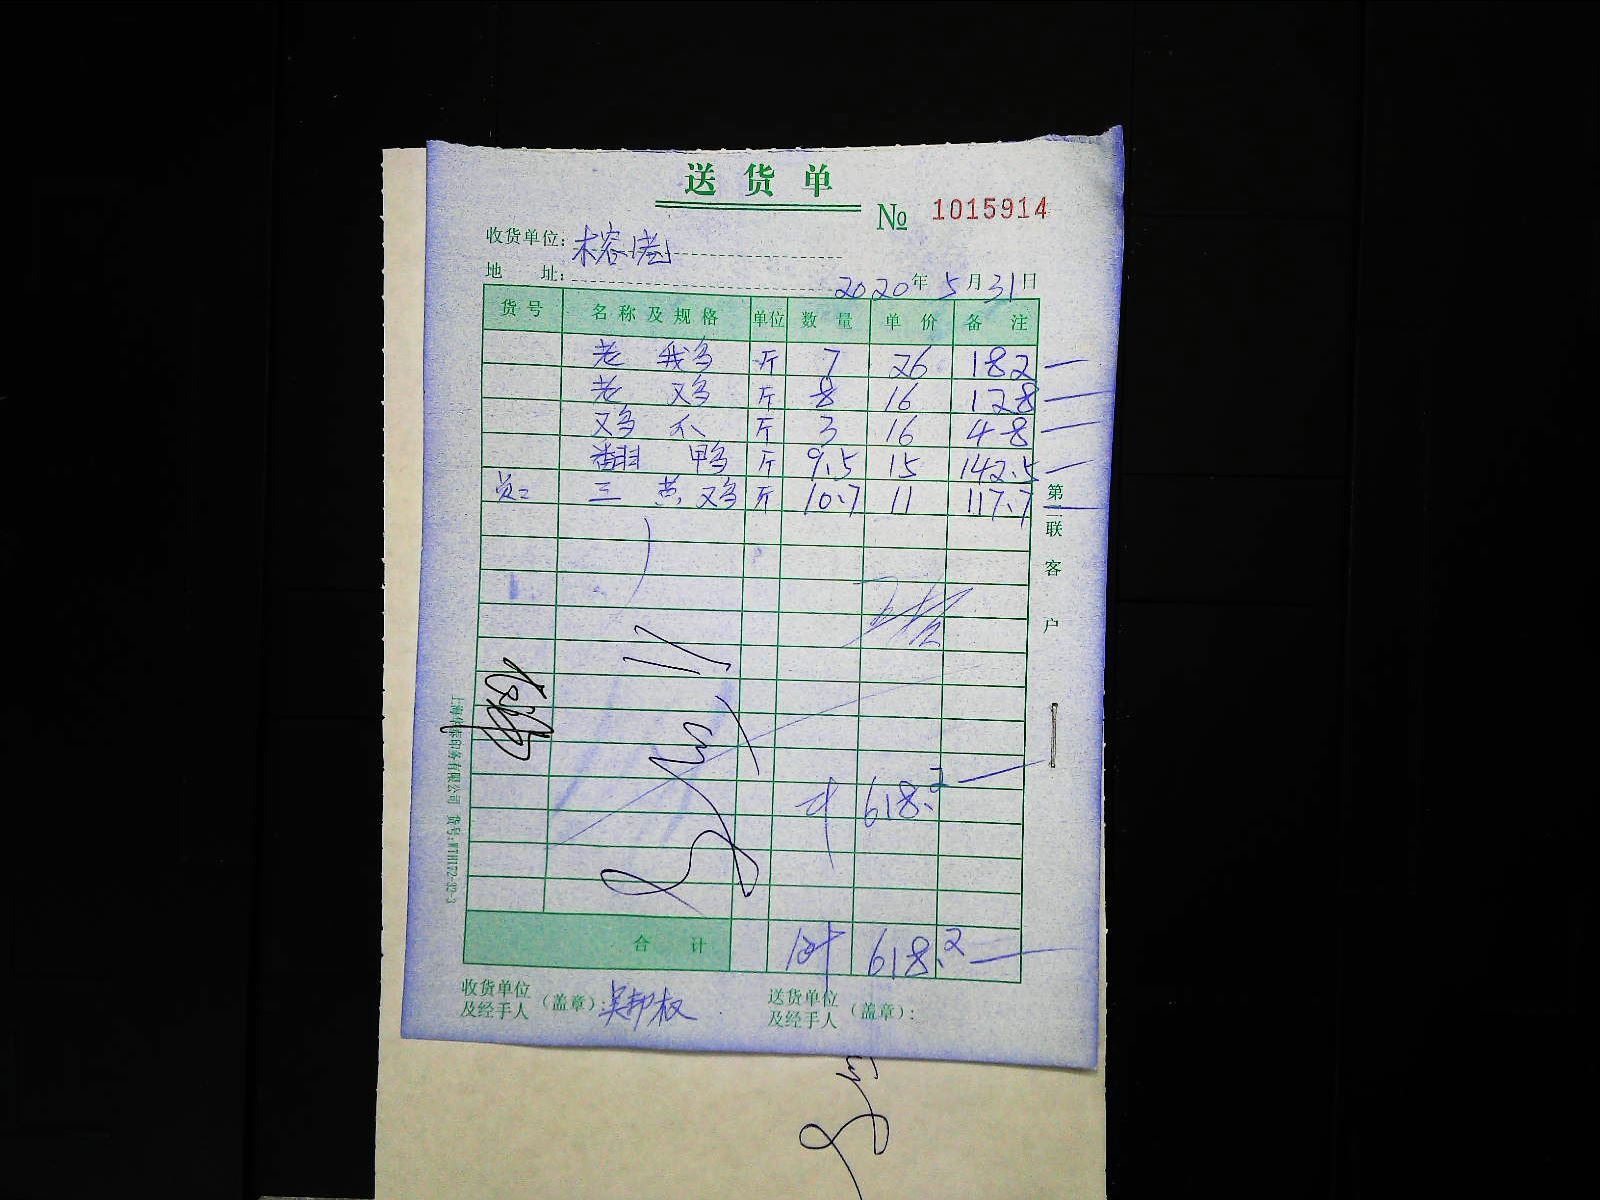 送货单
№ 1015914
收货单位：榕港
地 址：
2020年5月31日
货号 名称及规格 单位 数量 单价 备注
老 鹅 斤 7 26 182
老 鸡 斤 8 16 128
鸡 爪 斤 3 16 48
翻 鸭 斤 9.5 15 142.5
三 黄 鸡 斤 10.7 11 117.7
第二联 客户
计 618.2
合计 计 618.2
收货单位及经手人（盖章）：吴邦权
送货单位及经手人（盖章）：
货号：WTH172-32-3